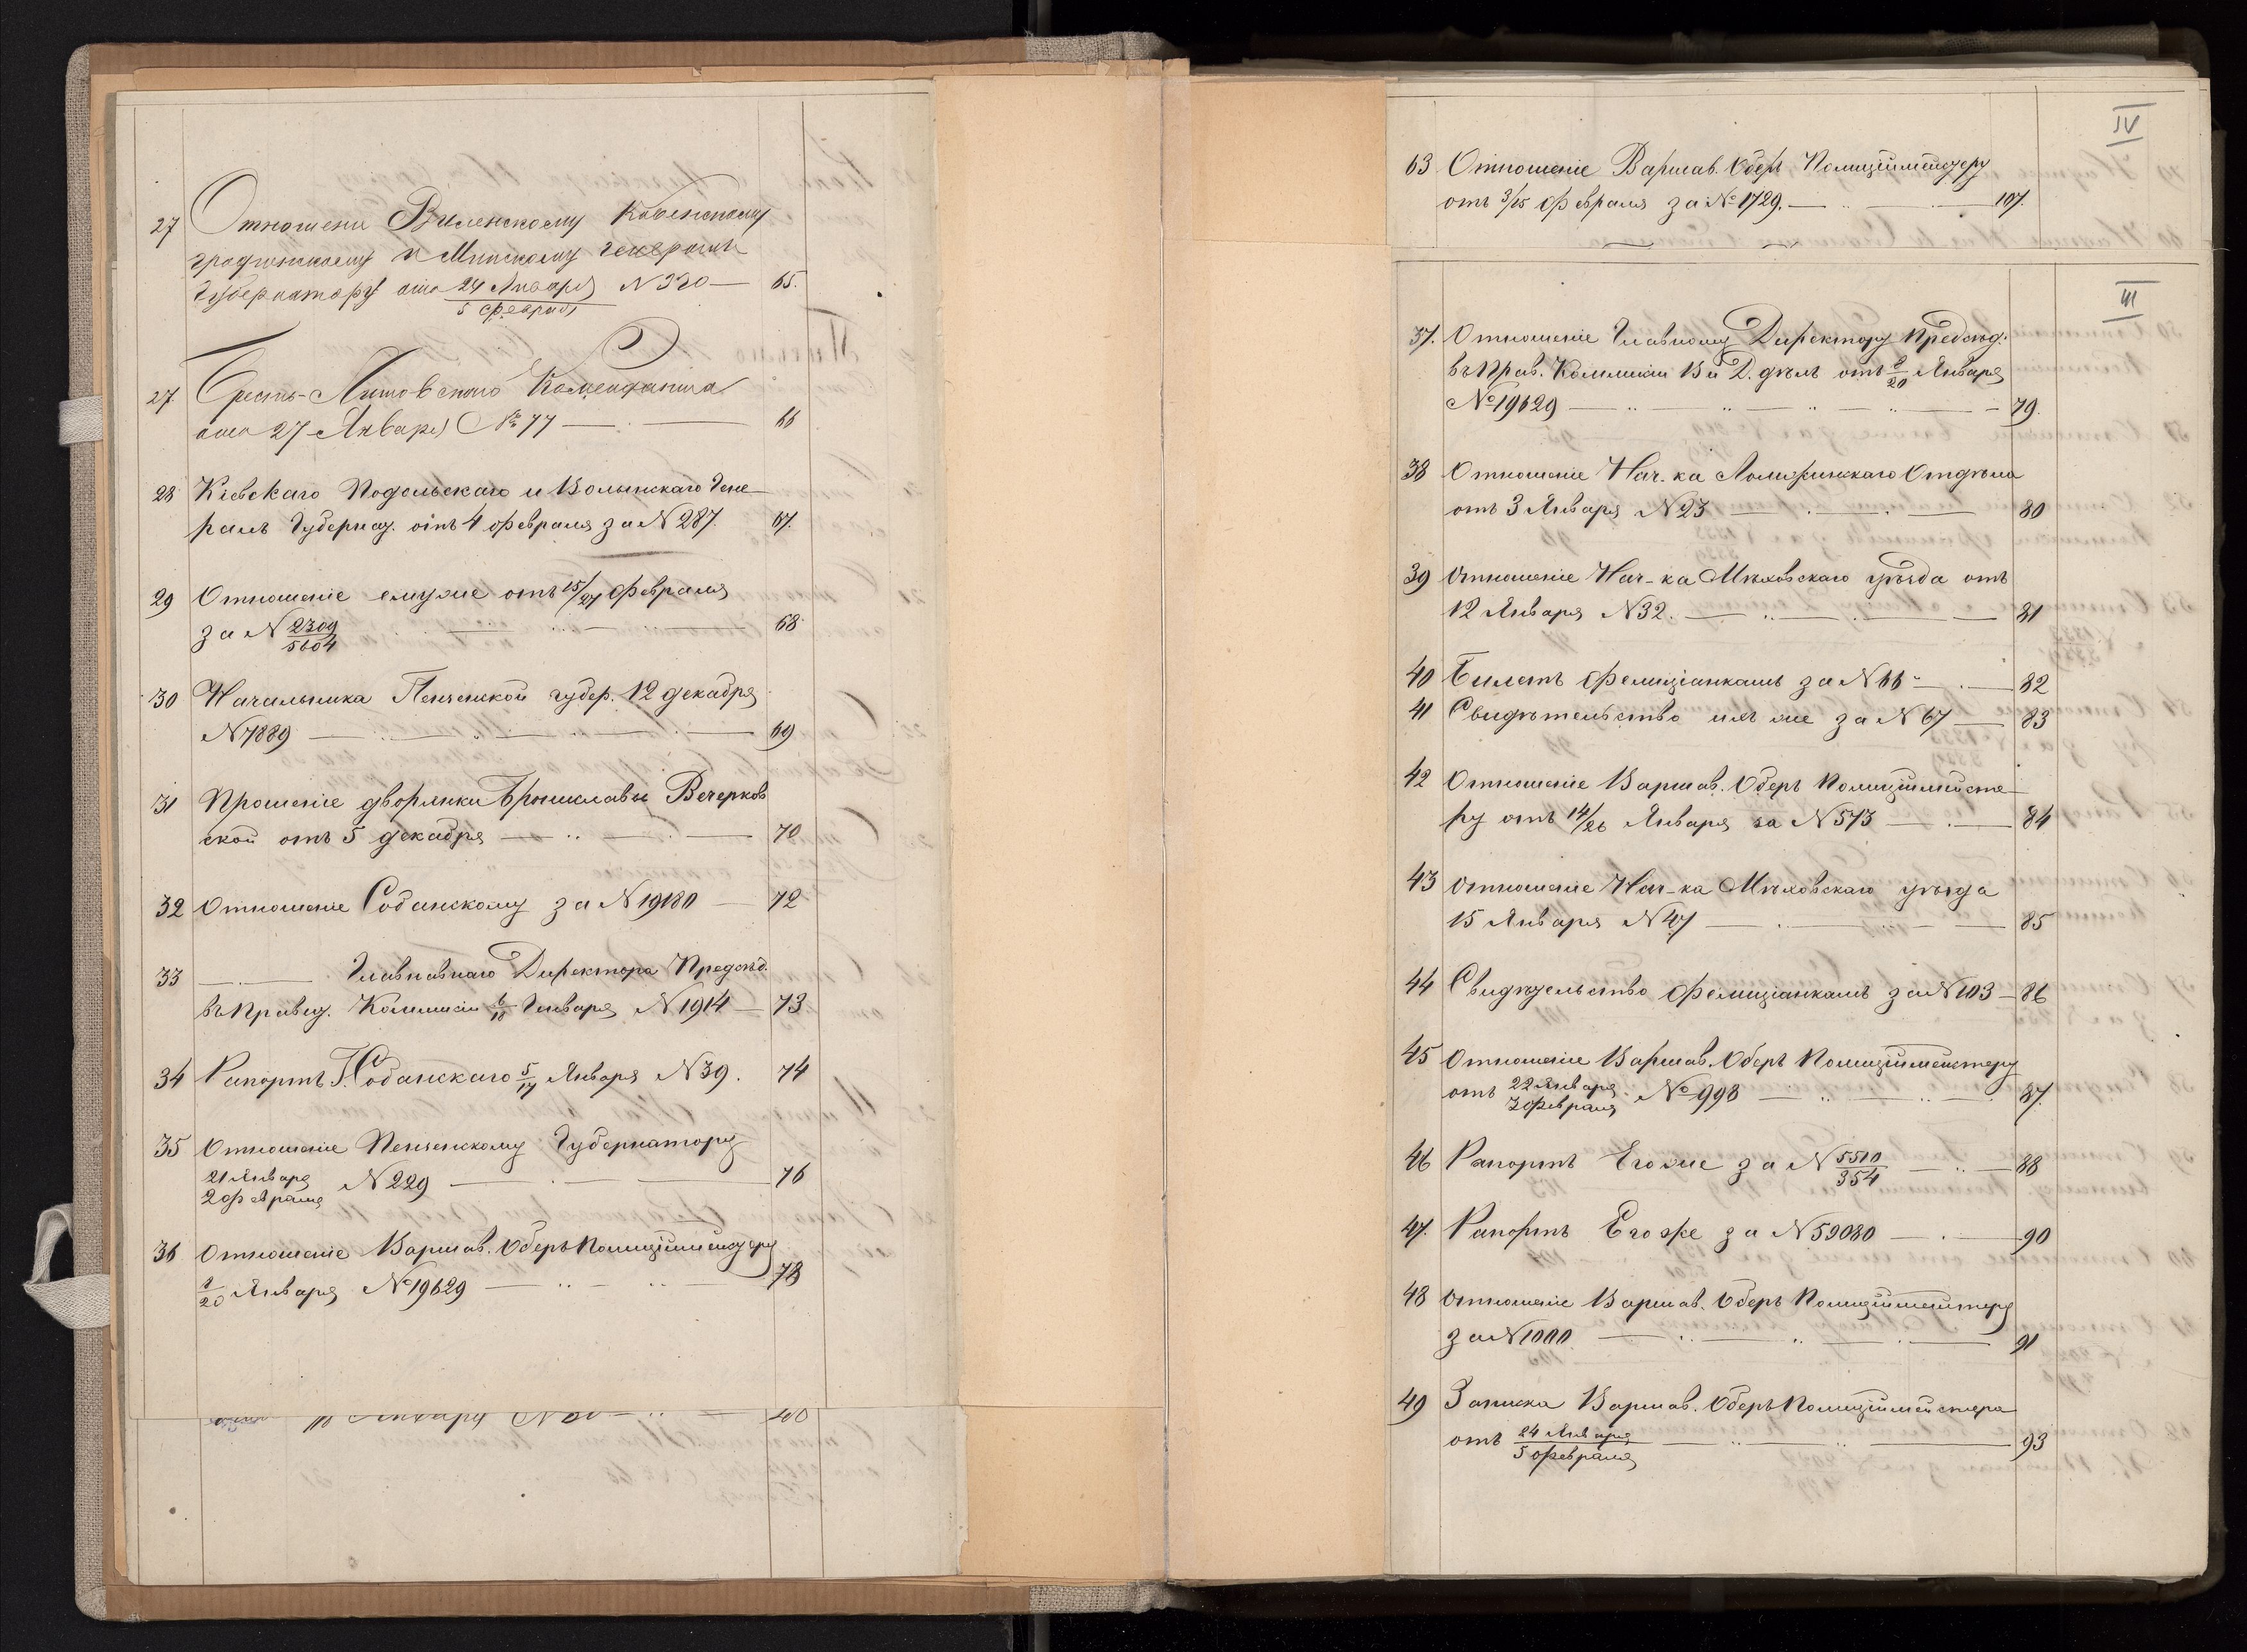 27 Отношени Виленскому Ковенскому
Гродненскому и Минскому Генералъ
Губернатору отъ 24 Января / 5 Февраля N 320 — 65.
27 Брестъ-Литовскаго Коменданта
отъ 27 Января № 77 — 66
28 Кіевскаго Подольскаго и Волынскаго Гене-
ралъ Губернат. отъ 4 февраля за N 287. 67.
29 Отношеніе емуже отъ 15/27 февраля
за N 2309/5604 — 68
30 Начальника Пензенской губер. 12 декабря
N 7889 — 69
31 Прошеніе дворянки Брониславы Вечерков
ской отъ 5 декабря — 70
32 Отношеніе Собанскому за N 19180 — 72
33 — Главнаваго Директора Предсѣд.
въ Правит. Коммисіи 6/18 Января N 1914 — 73
34 Рапортъ Г. Собанскаго 5/17 Января N 39. 74
35 Отношеніе Пензенскому Губернатору
21 Января / 2 февраля N 229 — 76
36 Отношеніе Варшав. Оберъ Полиціймейстеру
8/20 Января № 19629 — 78
Января N — 
IV
63 Отношеніе Варшав. Оберъ Полиціймейстеру
отъ 3/15 февраля за № 1729. — 107.
III
37. Отношеніе Главному Директору Предсѣд.
въ Прав. Коммисіи В и Д. дѣлъ отъ 8/20 Января
№ 19629 — 79.
38 Отношеніе Нач-ка Ломжинскаго Отдѣла
отъ 3 Января N 23 — 80
39 Отношеніе Нач-ка Мѣховскаго уѣзда отъ
12 Января N 32. — 81
40 Билетъ Фелиціанкамъ за N 66 — 82
41 Свидѣтельство имъ же за N 67 — 83
42 Отношеніе Варшав. Оберъ Полиціймейсте-
ру отъ 14/26 Января за N 573 — 84
43 Отношеніе Нач-ка Мѣховскаго уѣзда
15 Января N 47 — 85
44 Свидѣтельство Фелиціанкамъ за N 103 — 86
45 Отношеніе Варшав. Оберъ Полиціймейстеру
отъ 22 Января / 3 февраля № 998 — 87.
46 Рапортъ Егоже за N 5510/354 — 88
47. Рапортъ Егоже за N 59080 — 90
48 Отношеніе Варшав. Оберъ Полиціймейстеру
за N 1000 — 91
49 Записка Варшав. Оберъ Полиціймейстера
отъ 24 Января / 5 февраля — 93